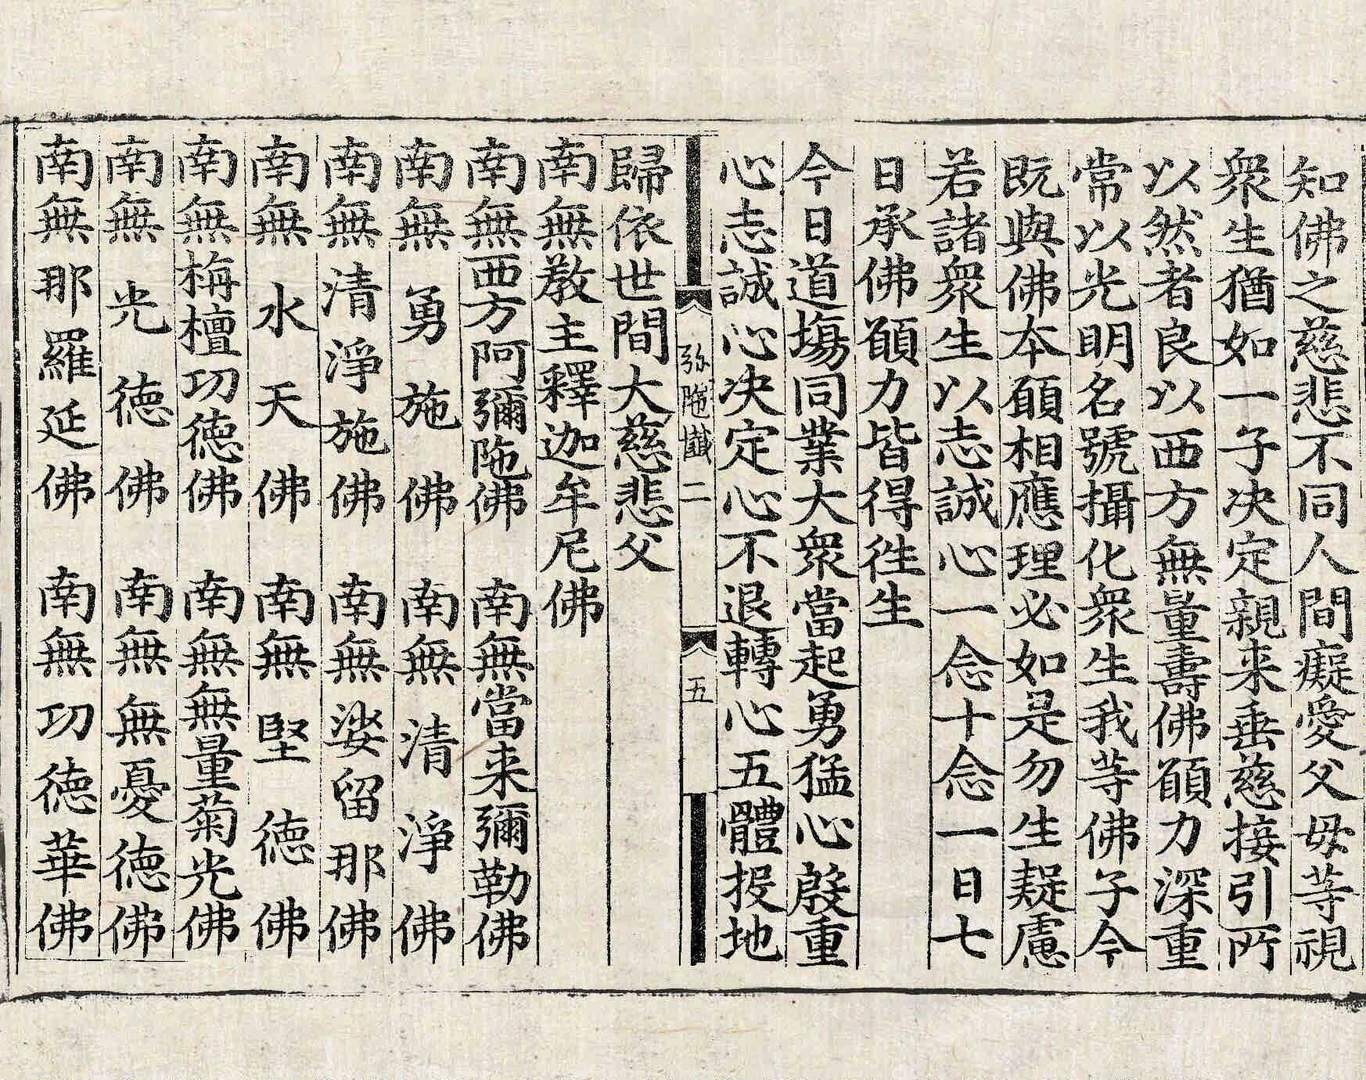 知佛之慈悲不同人間癡愛父母等視
衆生猶如一子决定親来垂慈接引所
以然者良以西方無量壽佛願力深重
常以光明名號攝化衆生我等佛子今
既與佛本願相應理必如是勿生疑慮
若諸衆生以志誠心一念十念一日七
日承佛願力皆得徃生
今日道塲同業大衆當起勇猛心殷重
心志誠心决定心不退轉心五體投地
弥陁懴二 五
歸依世間大慈悲父
南無教主釋迦牟尼佛
南無西方阿彌陁佛 南無當来彌勒佛
南無勇施佛 南無清淨佛
南無清淨施佛 南無娑留那佛
南無水天佛 南無堅徳佛
南無栴檀功徳佛 南無無量菊光佛
南無光徳佛 南無無憂徳佛
南無那羅延佛 南無功徳華佛